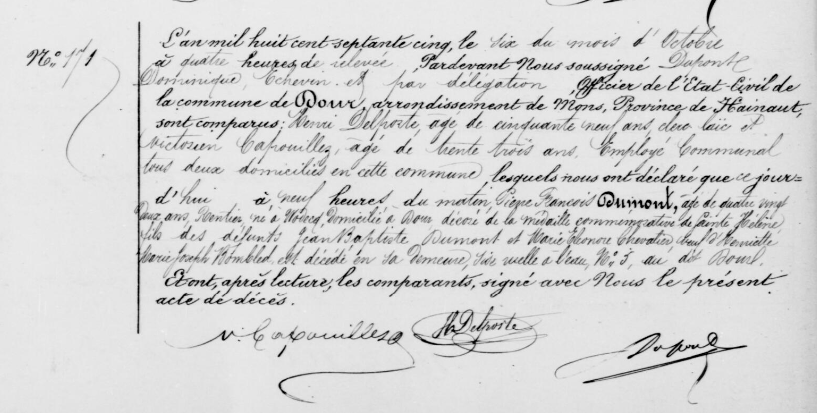 N.o 171
L'an mil huit cent septante cinq, le six du mois d'Octobre
à quatre heures de relevée, Pardevant Nous soussigné Dupont
Dominique, Echevin et par délégation, Officier de l'Etat-Civil de
la commune de Dour, arrondissement de Mons, Province de Hainaut,
sont comparus: Henri Delposte, agé de cinquante neuf ans, clerc laïc et
Victorien Capouillez, agé de trente trois ans, Employé Communal
tous deux domiciliés en cette commune lesquels nous ont déclaré que ce jour=
d'hui à neuf heures du matin Pierre François Dumont, agé de quatre vingt
deux ans, Rentier, né à Domicilié à Dour décoré de la médaille commemorative de Sainte Hélène,
fils des défunts Jean Baptiste Dumont et Marie Eleonore Chevalier veuf d'Henriette
Marie Joseph Wombled, est décédé en sa demeure, sise ruelle à l'eau, N.o 5, au dit Dour.
Et ont, après lecture, les comparants, signé avec Nous le présent
acte de décès.
V. Capouillez
H. Delposte
Dupont